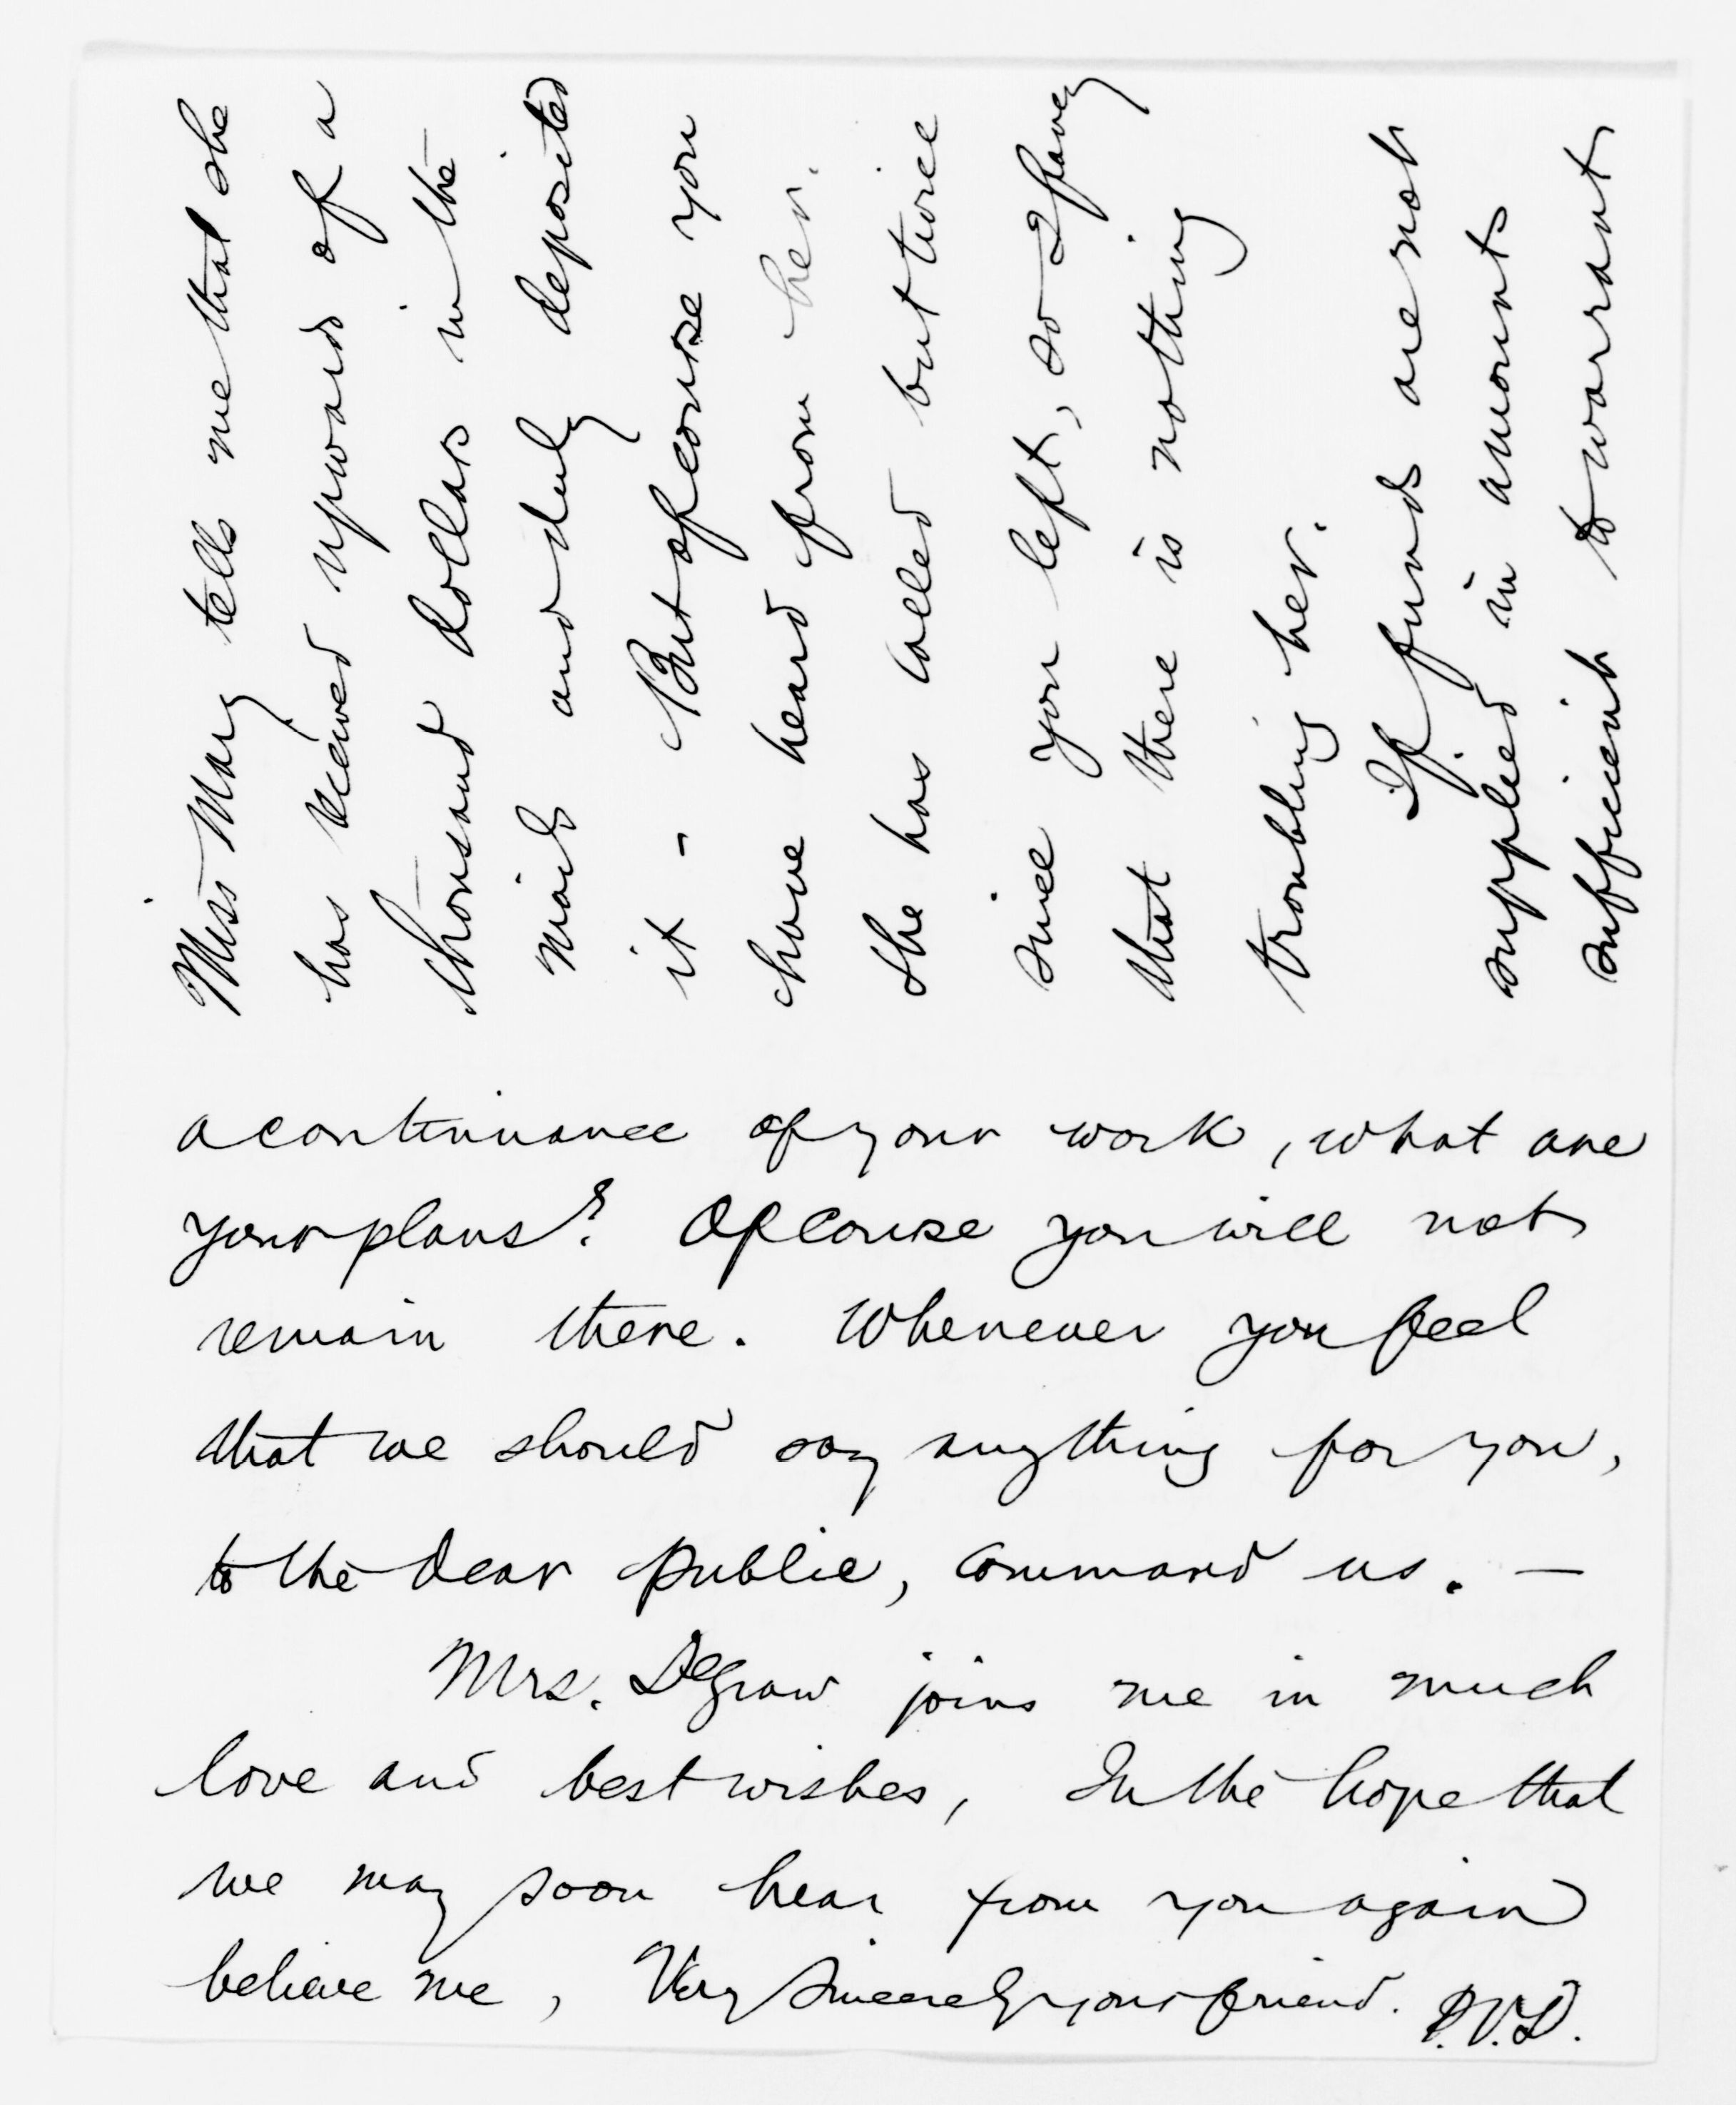 Miss Mary tells me that she
has received upwards of a
thousand dollars in the
mails and duly deposited
it - But of course you
have heard from her.
She has called but twice
since you left, so I fancy
that there is nothing
troubling her.
If funds are not
supplied in amounts
sufficient to warrant
a continuance of your work, what are
your plans? Of course you will not
remain there. Whenever you feel
that we should say anything for you,
to the dear public, command us. —
Mrs. DeGraw joins me in much
love and best wishes, In the hope that
we may soon hear from you again
believe me, Very Sincerely your friend. P.V.D.